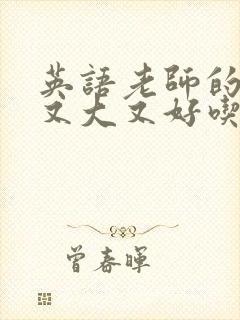 英語老師的
又大又好喫
曾春暉